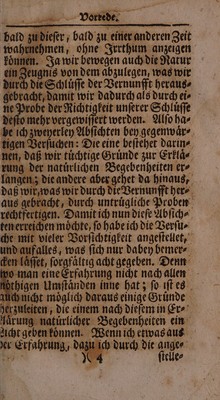 Vorrede.
bald zu dieser, bald zu einer anderen Zeit
wahrnehmen, ohne Irrthum anzeigen
können. Ja wir bewegen auch die Natur
ein Zeugnis von dem abzulegen, was wir
durch die Schlüsse der Vernunfft heraus-
gebracht, damit wir dadurch als durch ei-
ne Probe der Richtigkeit unserer Schlüsse
desto mehr vergewissert werden. Also ha-
be ich zweyerley Absichten bey gegenwär-
tigen Versuchen: Die eine bestehet darin-
nen, daß wir tüchtige Gründe zur Erklä-
rung der natürlichen Begebenheiten er-
langen; die andere aber gehet da hinaus,
daß wir, was wir durch die Vernunfft her-
aus gebracht, durch untrügliche Proben
rechtfertigen. Damit ich nun diese Absich-
ten erreichen möchte, so habe ich die Versu-
che mit vieler Vorsichtigkeit angestellet,
und auf alles, was sich nur dabey bemer-
cken lässet, sorgfältig acht gegeben. Denn
wo man eine Erfahrung nicht nach allen
nöthigen Umständen inne hat; so ist es
auch nicht möglich daraus einige Gründe
herzuleiten, die einem nach diesem in Er-
klärung natürlicher Begebenheiten ein
Licht geben können. Wenn ich etwas aus
der Erfahrung, dazu ich durch die ange-
)( 4 stelle-